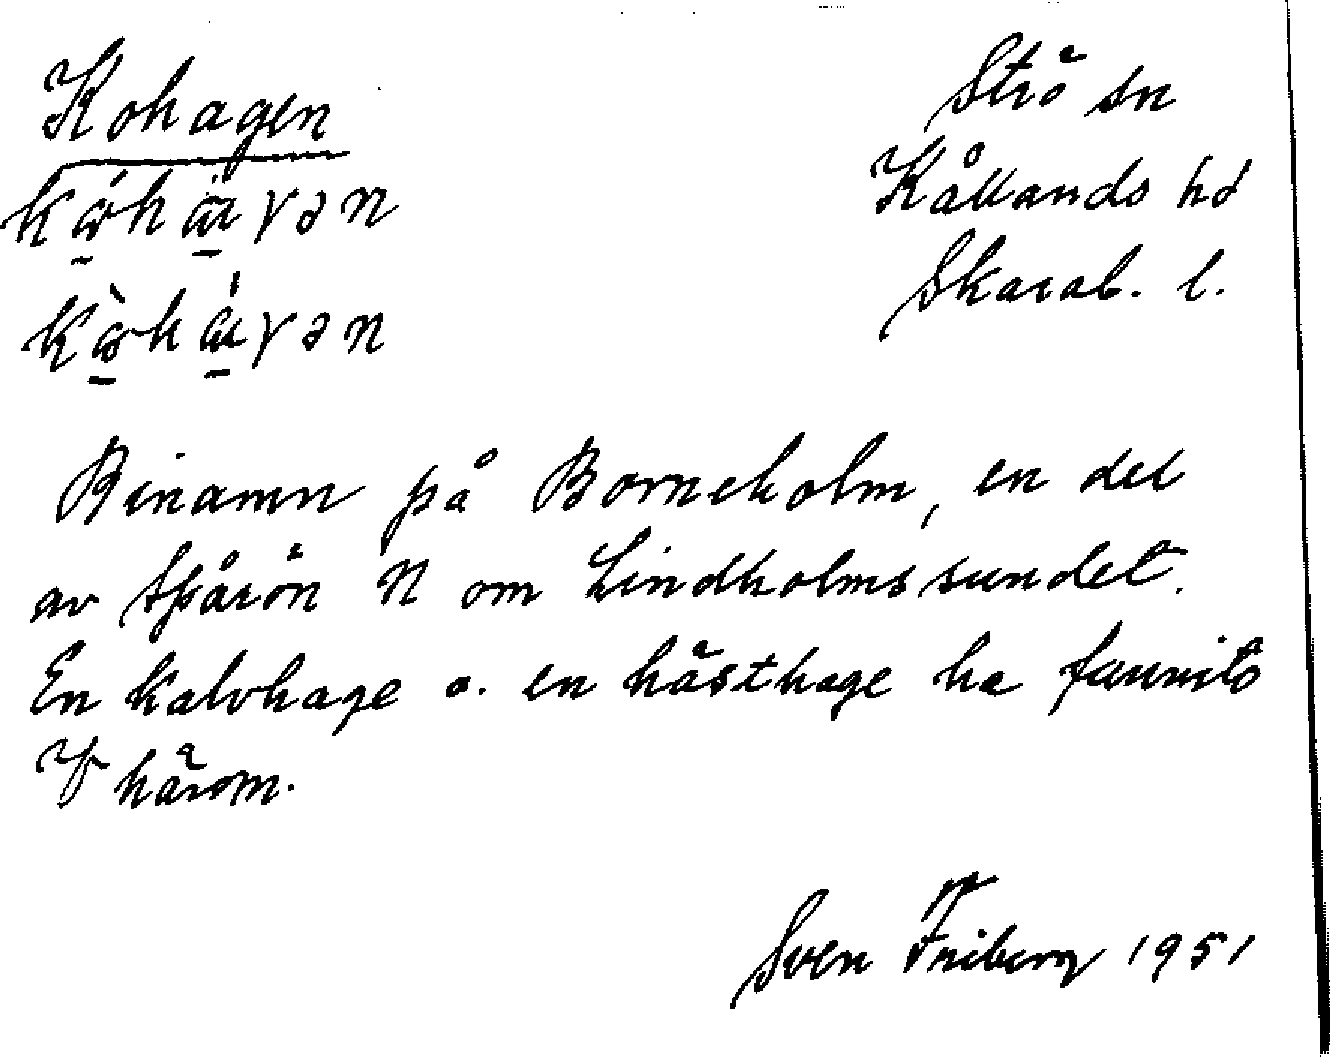 Kohagen
Strö sn
Kållands hd
Skarab. l.
Binamn på Borneholm, en del
av Spårön N om Lindholmssundet.
En kalvhage o. en hästhage ha funnits
V härom.
Sven Friberg 1951